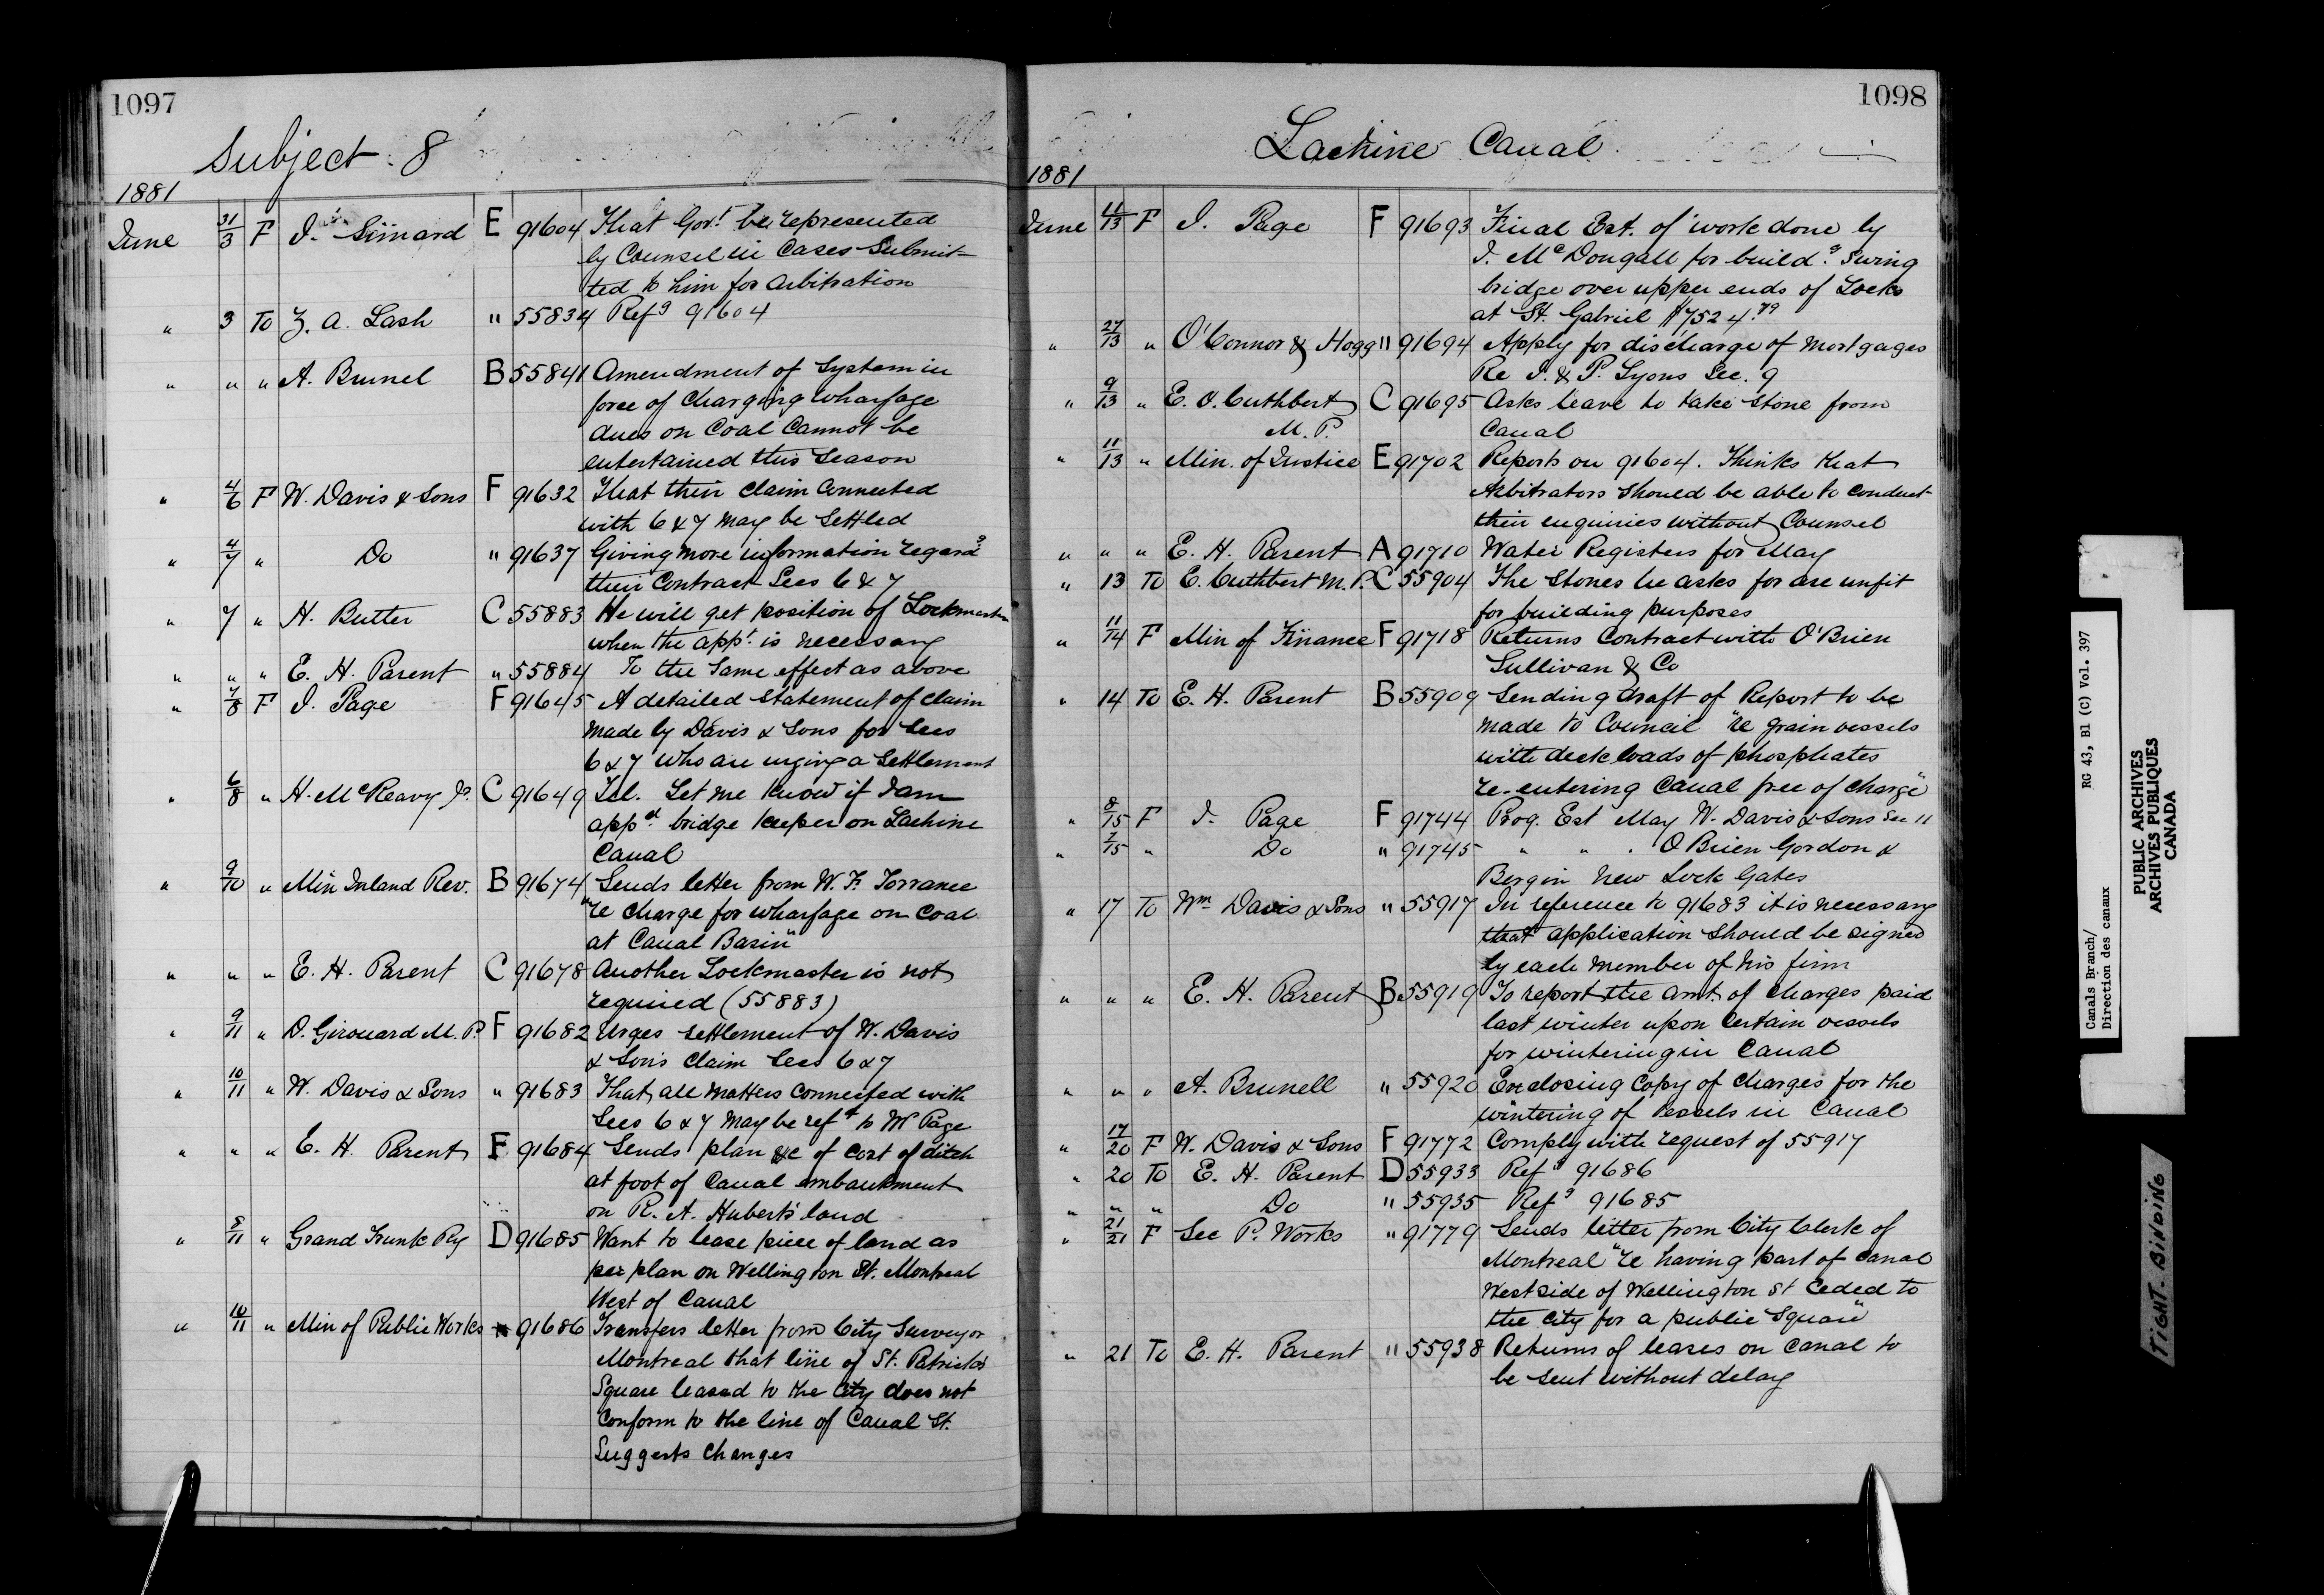 1097
Subject. 8
1881
June 31/3 F J. Simard E 91604 That Gov.t be represented
by Counsel in Cases Submit-
ted to him for Arbitration
" 3 To Z. A. Lash " 55834 Refg 91604
" " " A. Brunel B 55841 Amendment of System in
force of charging wharfage
dues on Coal Cannot be
entertained this Season
" 4/6 F W. Davis & Sons F 91632 That their claim Connected
with 6 & 7 may be Settled
" 4/7 " Do " 91637 Giving more information regardg
their Contract Secs 6 & 7
" 7 " H. Butter C 55883 He will get position of Lockmaster
when the appt. is necessary
" " " E. H. Parent " 55884 To the same effect as above
" 7/8 F J. Page F 91645 A detailed statement of claim
made by Davis & Sons for Secs
6 & 7 who are urging a Settlement
" 6/8 " H. McReavy Jr. C 91649 Tel. Let me know if I am
appd. bridge keeper on Lachine
Canal
" 9/10 " Min Inland Rev. B 91674 Sends letter from W. F. Torrance
"re charge for wharfage on Coal
at Canal Basin"
" " " E. H. Parent C 91678 Another Lockmaster is not
required (55883)
" 9/11 " D. Girouard M.P. F 91682 Urges settlement of W. Davis
& Sons claim Secs 6 & 7
" 10/11 " W. Davis & Sons " 91683 That all matters connected with
Secs 6 & 7 may be refd to Mr Page
" " " E. H. Parent F 91684 Sends plan &c of cost of ditch
at foot of Canal embankment
on R. A. Hubert's land
" 8/11 " Grand Trunk Ry D 91685 Want to lease piece of land as
per plan on Wellington St. Montreal
West of Canal
" 10/11 " Min of Public Works " 91686 Transfers letter from City Surveyor
Montreal that line of St. Patrick's
Square leased to the City does not
conform to the line of Canal St.
Suggests changes
1098
Lachine Canal
1881
June 11/13 F J. Page F 91693 Final Est. of work done by
J. McDougall for buildg. Swing
bridge over upper ends of Locks
at St. Gabriel $7524.79
" 27/13 " O'Connor & Hogg " 91694 Apply for discharge of mortgages
Re J. & P. Lyons Sec. 9
" 9/13 " E. O. Cuthbert C 91695 Asks leave to take stone from
M. P. Canal
" 11/13 " Min. of Justice E 91702 Reports on 91604. Thinks that
Arbitrators should be able to conduct
their enquiries without Counsel
" " " E. H. Parent A 91710 Water Registers for May
" 13 To E. Cuthbert M.P. C 55904 The Stones he asks for are unfit
for building purposes
" 11/14 F Min of Finance F 91718 Returns Contract with O'Brien
Sullivan & Co
" 14 To E. H. Parent B 55909 Sending draft of Report to be
made to Council "re grain vessels
with deck loads of phosphates
re-entering Canal free of charge"
" 8/15 F J. Page F 91744 Prog. Est May W. Davis & Sons Sec 11
" 7/15 " Do " 91745 " " " O'Brien Gordon &
Bergin New Lock Gates
" 17 To Wm Davis & Sons " 55917 In reference to 91683 it is necessary
that application should be signed
by each member of his firm
" " " E. H. Parent B 55919 To report the amt. of charges paid
last winter upon certain vessels
for wintering in Canal
" " " A. Brunell " 55920 Enclosing Copy of charges for the
wintering of Vessels in Canal
" 17/20 F W. Davis & Sons F 91772 Comply with request of 55917
" 20 To E. H. Parent D 55933 Refg 91686
" " " Do " 55935 Refg 91685
" 21/21 F Sec P. Works " 91779 Sends letter from City Clerk of
Montreal "re having part of canal
West side of Wellington St Ceded to
the City for a public Square"
" 21 To E. H. Parent " 55938 Returns of leases on Canal to
be sent without delay
Canals Branch/ RG 43, B1 (C) Vol. 397
Direction des canaux
PUBLIC ARCHIVES
ARCHIVES PUBLIQUES
CANADA
TIGHT BINDING